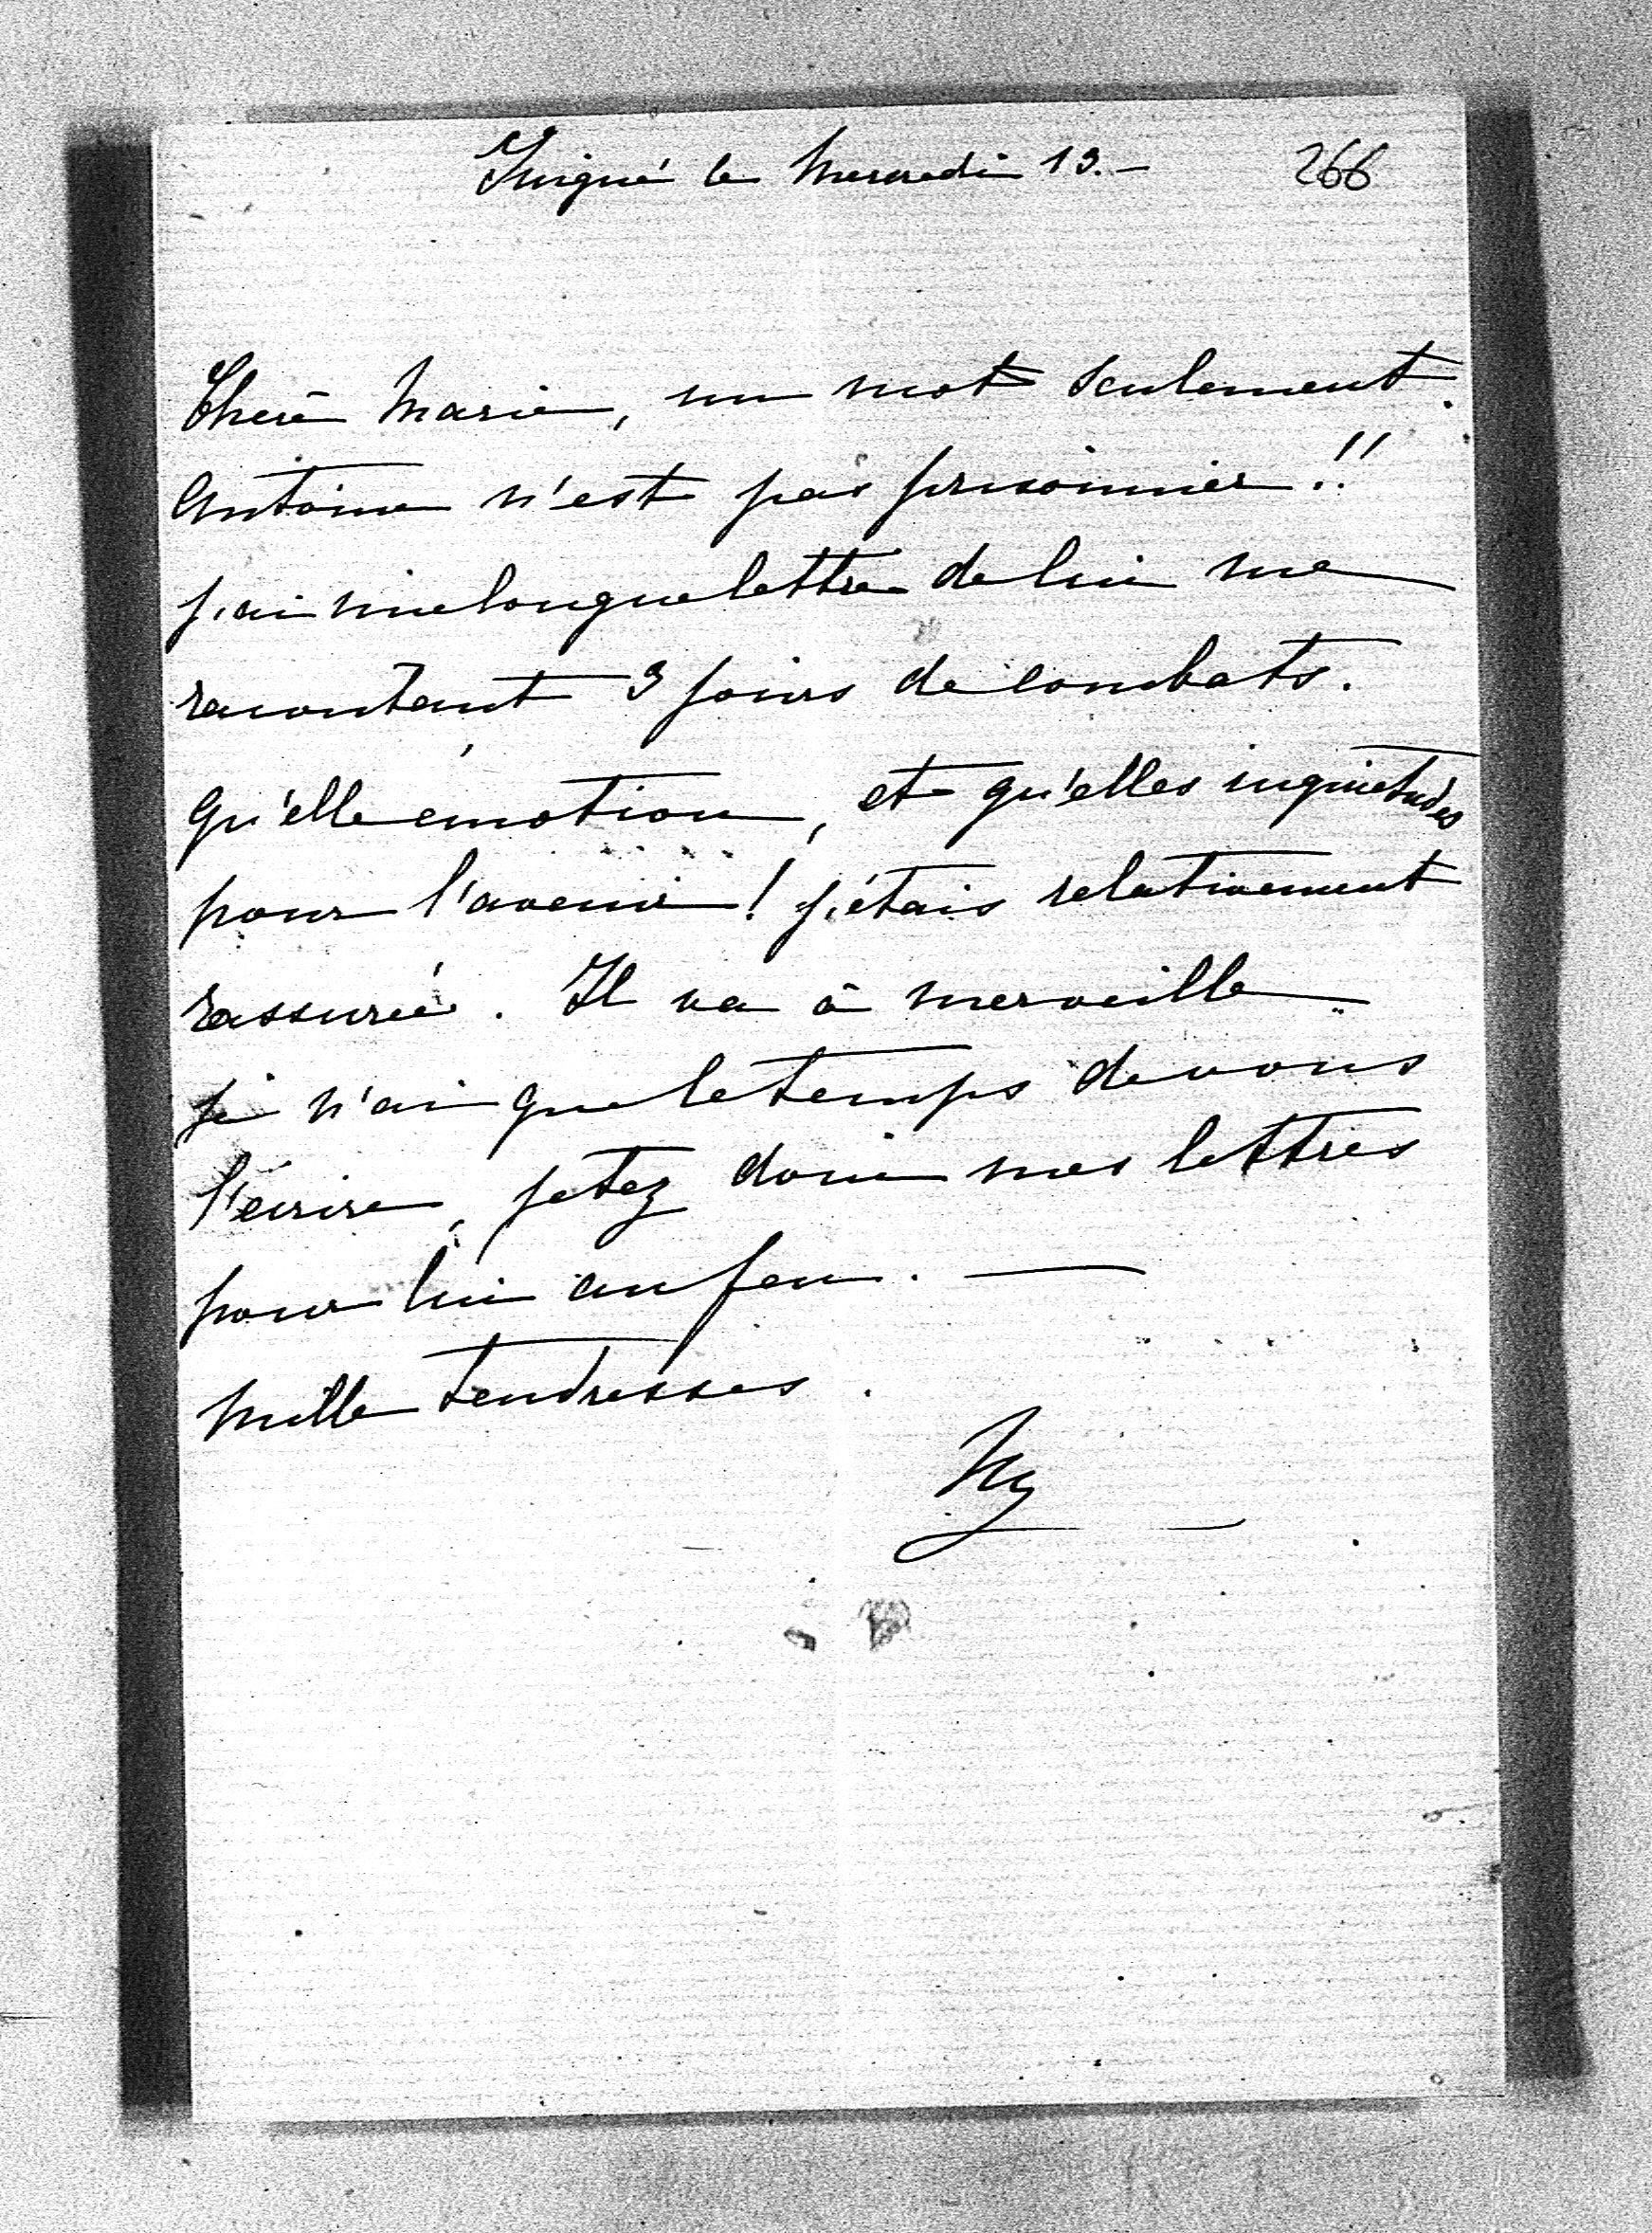 Juigné le Mercredi 13. — 266
Chère Marie, un mot seulement.
Antoine n'est pas prisonnier !!
j'ai une longue lettre de lui me
racontant 3 jours de combats.
qu'elle émotion, et qu'elles inquietudes
pour l'avenir ! j'étais relativement
rassurée. Il va à merveille.
je n'ai que le temps de vous
l'écrire, jetez donc mes lettres
pour lui au feu. —
Mille tendresses.